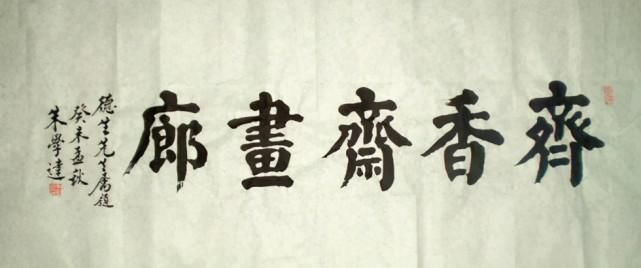 齊香齋畫廊
德生先生屬題
癸未孟秋
朱學達